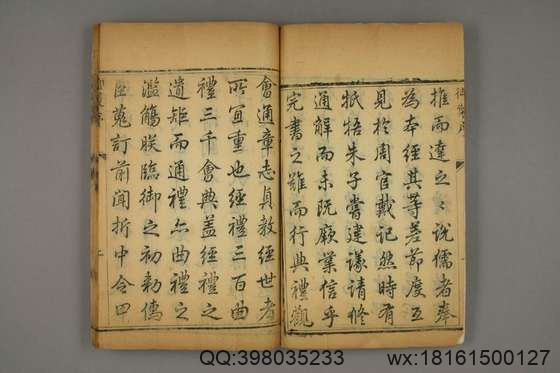 御製序
推而達之々說儒者奉
為本經其等差節度互
見於周官戴記然時有
牴牾朱子嘗建議請修
通解而未既厥業信乎
完書之難而行典禮觀
會通章志貞教經世者
所宜重也經禮三百曲
禮三千會典蓋經禮之
遺矩而通禮亦曲禮之
濫觴朕臨御之初勅儒
臣蒐訂前聞折中令甲
QQ:398035233
wx:18161500127